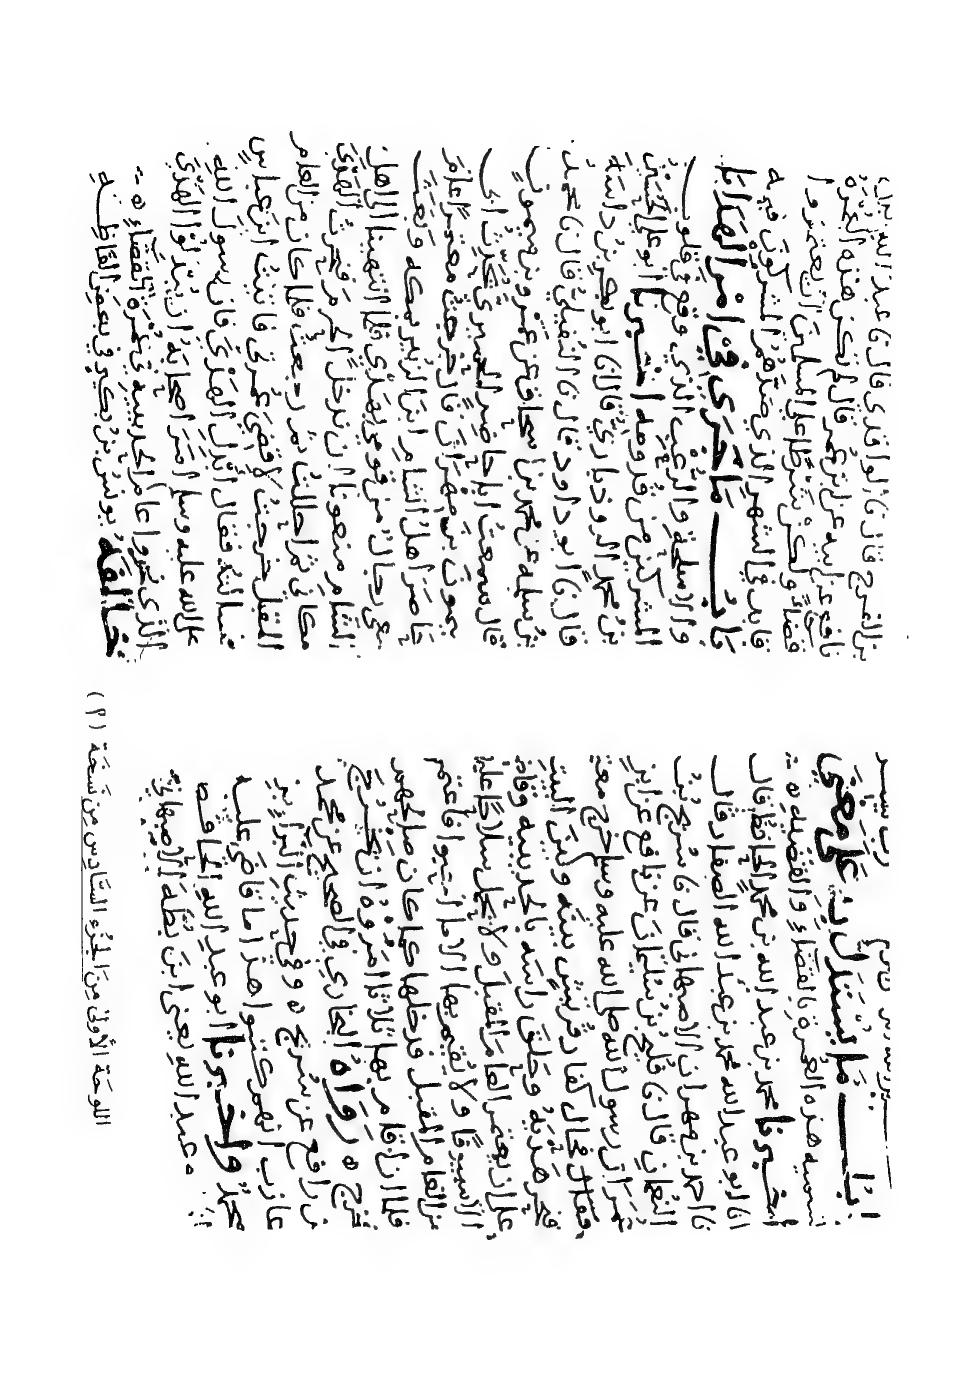 باب ما يستدل به على معنى
تسميه هذه العمرة بالقضاء والقضيه ه
اخبرنا محمد بن عبد الله بن محمد الحافظ قال
انا ابو عبد الله محمد بن عبد الله الصفار قال
نا احمد بن مهران الاصبهاني قال نا سريج بن
النعمان قال نا فليح بن سليمان عن نافع عن ابن
عمر ان رسول الله صلى الله عليه وسلم خرج معتمرا
فقال فحال كفار قريش بينه وبين البيت
فنحر هديه وحلق راسه بالحديبيه وقاضاهم
على ان يعتمر العام المقبل ولا يحمل سلاحا عليهم
الا سيوفا ولا يقيم بها الا ما احبوا فاعتمر
من العام المقبل فدخلها كما كان صالحهم
فلما ان اقام بها ثلاثا امروه ان يخرج
فخرج ه رواه البخاري في الصحيح عن محمد
بن رافع عن سريج ه وفي حديث البراء بن
عازب انهم كتبوا هذا ما قاضى عليه
محمد واخبرنا ابو عبد الله الحافظ
ه عبد الله يعني ابن بطة الاصبهاني
بن الفرج قال نا الواقدي قال نا عبد الله بن
نافع عن ابيه عن ابن عمر قال لم تكن هذه العمرة
قضاء ولكن شرطا على المسلمين ان يعتمروا
قابل في الشهر الذي صدهم المشركون فيه
باب ما جرى في امر الهدايا
والاسلحة والرعب الذي وقع في قلوب
المشركين من قدومه اخبرنا ابو علي الحسين
بن محمد الروذباري قال انا ابو بكر بن داسة
قال نا ابو داود قال نا النفيلي قال نا محمد
بن سلمه عن محمد بن اسحاق عن عمرو بن ميمون
قال سمعت ابا حاضر الحميري يحدث ابي
ميمون بن مهران قال خرجت معتمرا عام
حاصر اهل الشام ابن الزبير بمكه وبعث
معي رجال من قومي بهدي فلما انتهينا الى اهل
الشام منعونا ان ندخل الحرم فنحرت الهدي
مكاني ثم احللت ثم رجعت فلما كان من العام
المقبل خرجت لاقضي عمرتي فاتيت ابن عباس
فسالته فقال ابدل الهدي فان رسول الله
صلى الله عليه وسلم امر اصحابه ان يبدلوا الهدي
الذي نحروا عام الحديبية في عمرة القضاء ه
يونس بن بكير في بعض الفاظه
اللوحة الأولى من الجزء السادس من نسخة (م)